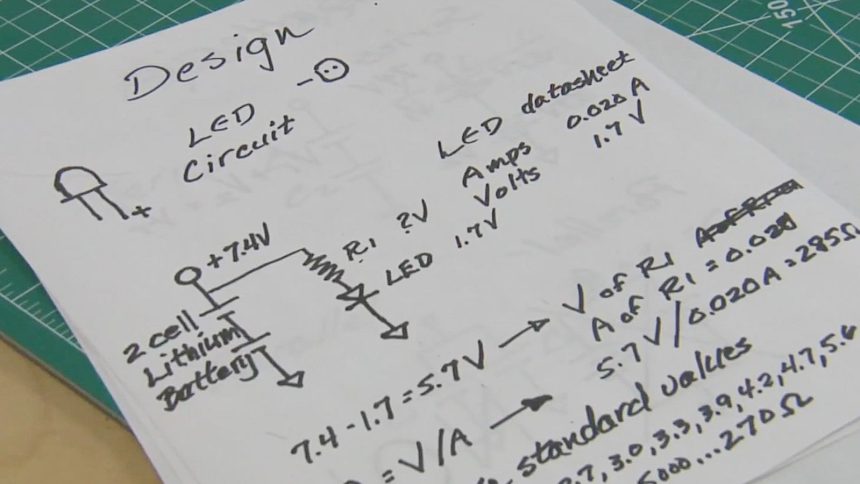 Design
LED
Circuit
+
-
LED datasheet
Amps 0.020 A
Volts 1.7 V
+7.4V
R1 ?V
LED 1.7V
2 cell
Lithium
Battery
7.4 - 1.7 = 5.7V → V of R1
A of R1 = 0.020
5.7V/0.020A = 285Ω
= V/A →
standard values
2.7, 3.0, 3.3, 3.9, 4.2, 4.7, 5.6
5000...270Ω
150